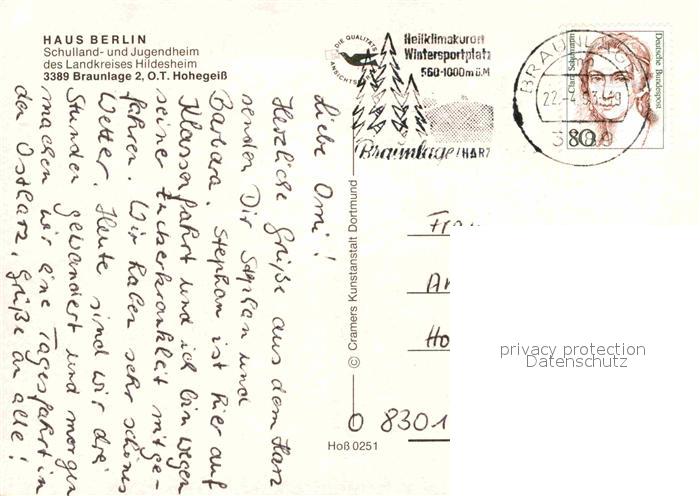 HAUS BERLIN
Schulland- und Jugendheim
des Landkreises Hildesheim
3389 Braunlage 2, O.T. Hohegeiß
Liebe Omi!
Herzliche Grüße aus dem Harz
senden Dir Stephan und
Barbara. Stephan ist hier auf
Klassenfahrt und ich bin wegen
seiner Zuckerkrankheit mitge-
fahren. Wir haben sehr schönes
Wetter. Heute sind wir drei
Stunden gewandert und morgen
machen wir eine Tagesfahrt in
den Ostharz. Grüße an alle!
DIE QUALITÄTS
ANSICHTSKARTE
Heilklimakurort
Wintersportplatz
560-1000m ü.M
Braunlage/HARZ
BRAUNLAGE
22.-4.93
3389
Clara Schumann
Deutsche Bundespost
80
© Cramers Kunstanstalt Dortmund
Hoß 0251
O 8301
privacy protection
Datenschutz